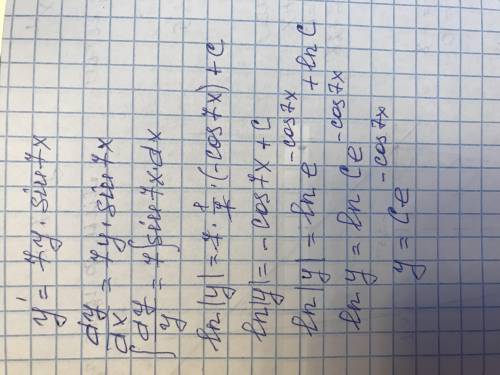 y' = 7y · sin7x
dy/dx = 7y · sin7x
∫ dy/y = 7∫sin7x · dx
ln|y| = 7 · 1/7 · (-cos7x) + C
ln|y| = -cos7x + C
ln|y| = ln e^(-cos7x) + ln C
ln y = ln Ce^(-cos7x)
y = Ce^(-cos7x)